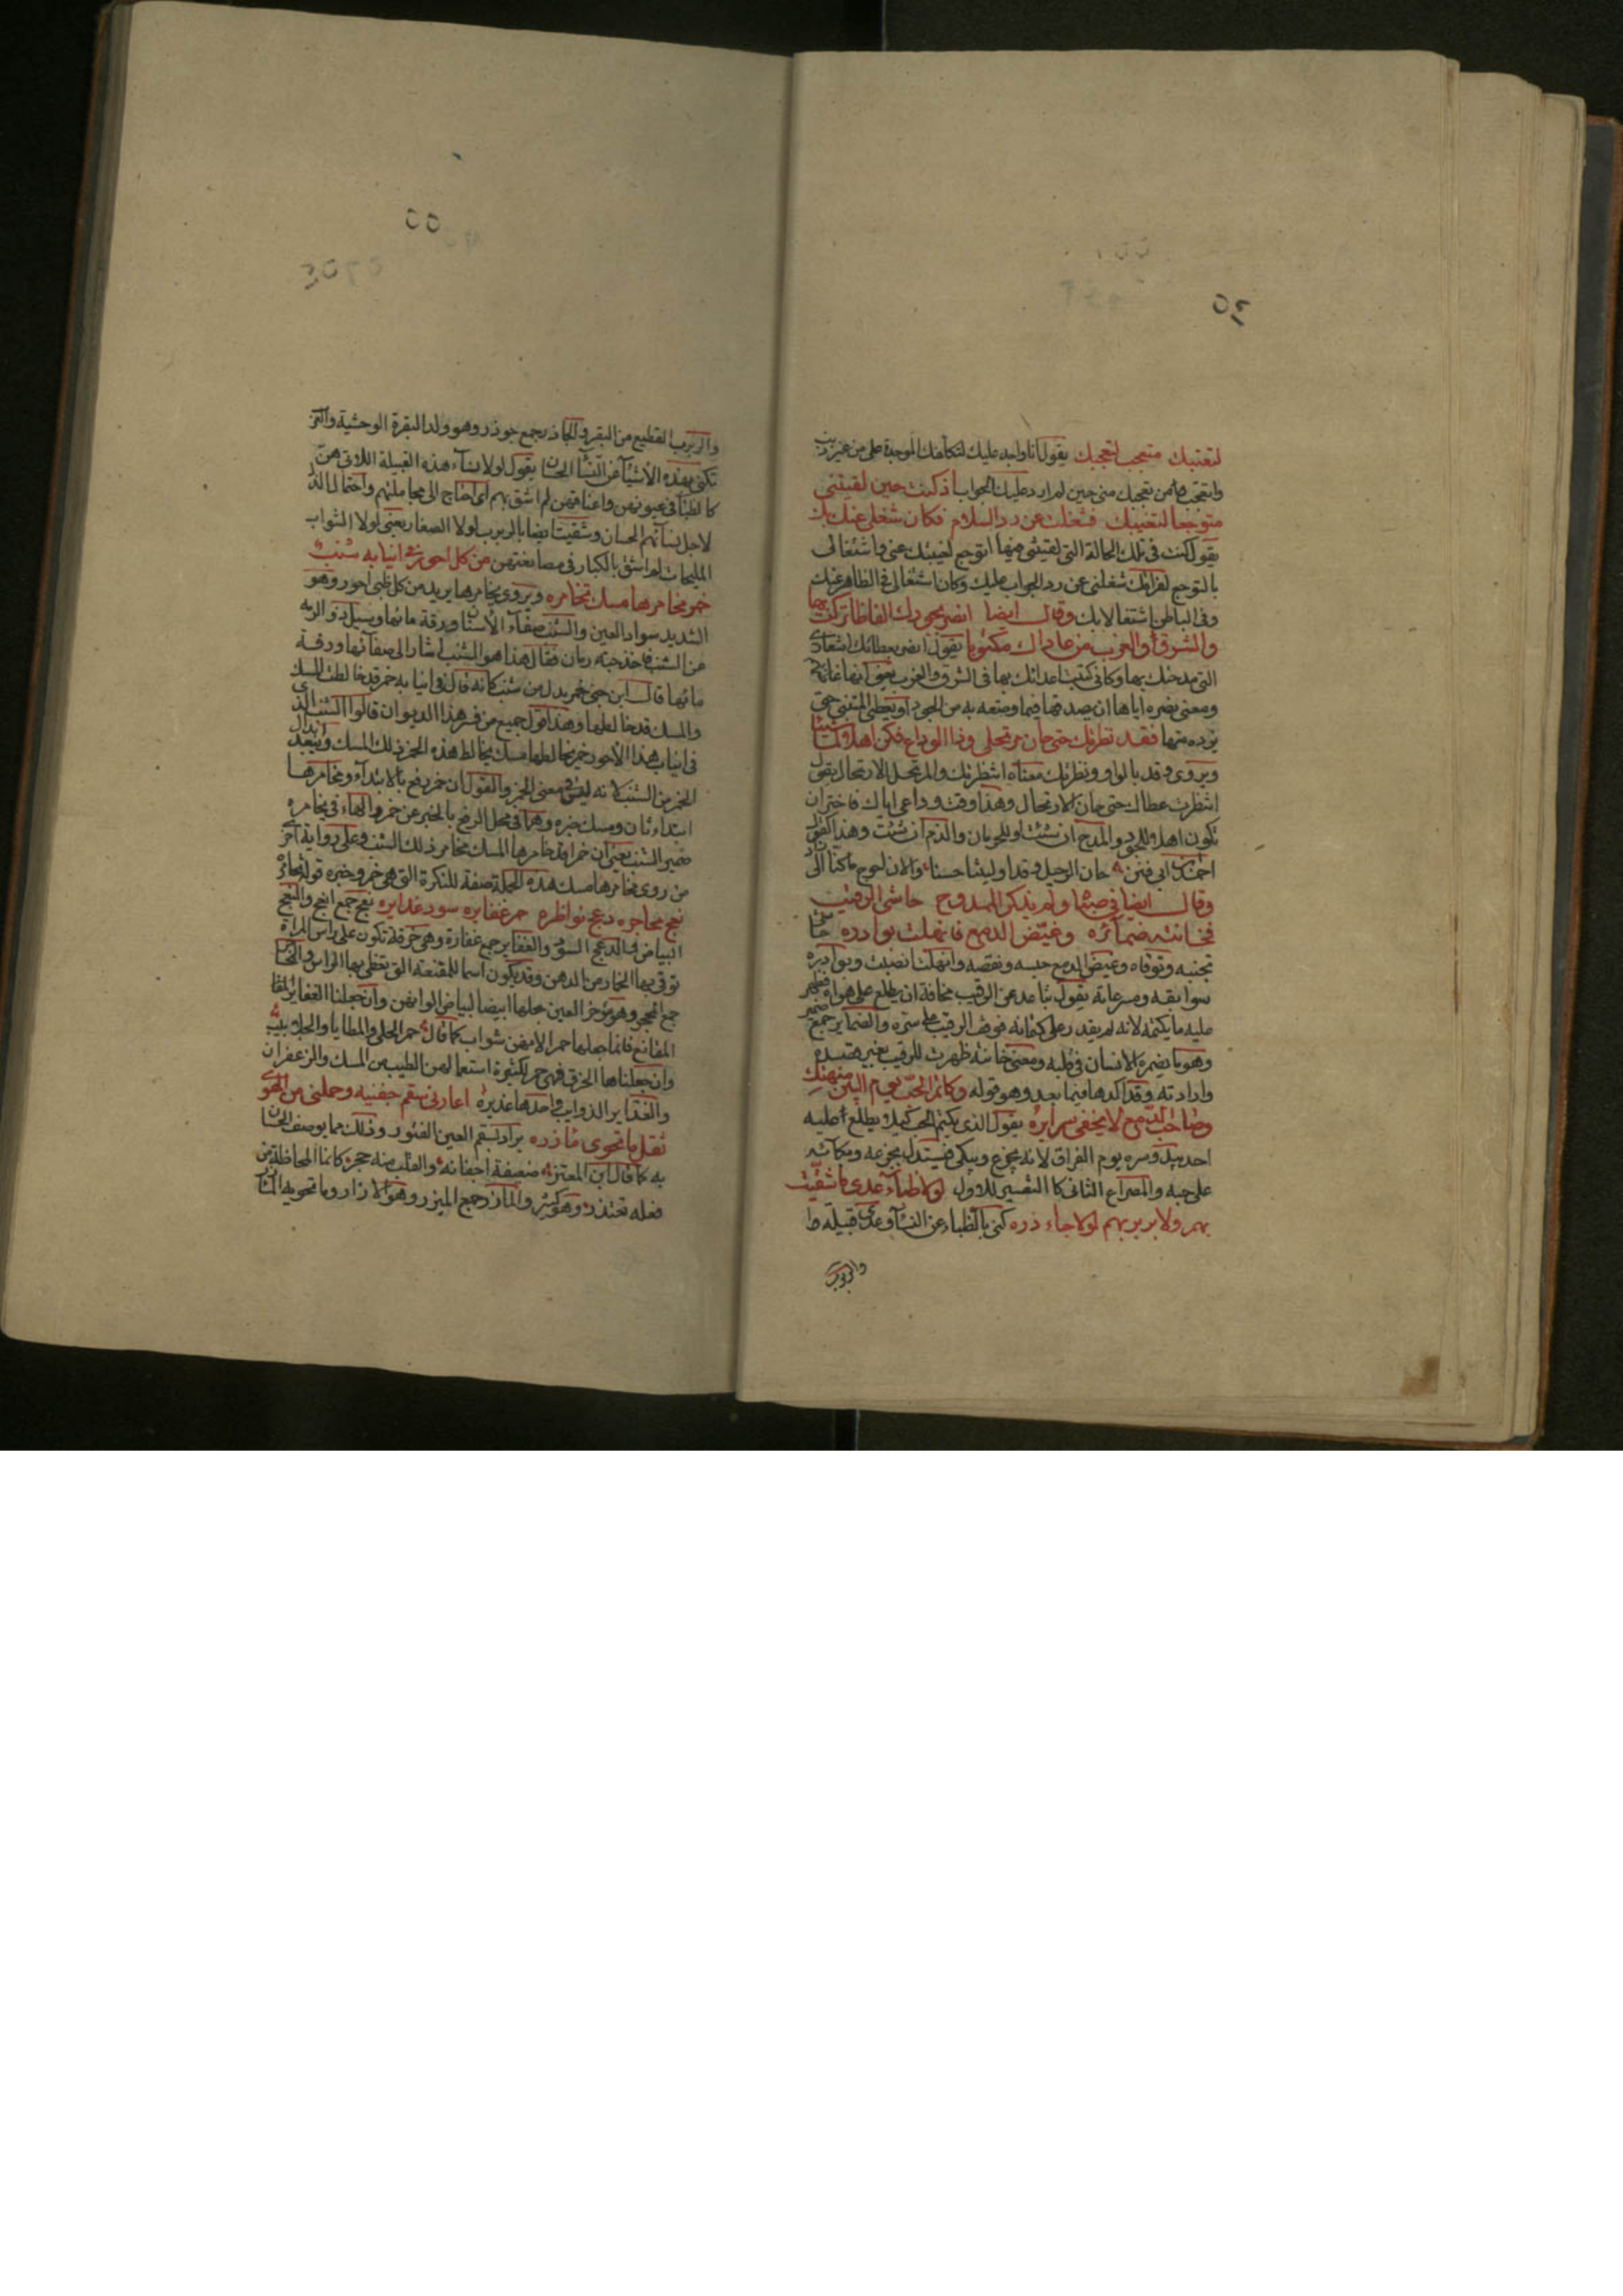 ٥٤
لتغيبك متعجب لتعجبك يقول انا واجد عليك لتكلفك الموجدة علي من غير ذنب
وانتجب من تعجبك مني حين لم ارد عليك الجواب اذ كنت حين لقيتني
متوجعا لتغيبك فشغلت عن رد السلام فكان شغلي عنك بك
يقول كنت في تلك الحالة التي لقيتني فيها اتوجع لغيبتك عني واشتغالي
بالتوجع لفراقك شغلني عن رد الجواب عليك وكان اشتغالي في الظاهر عنك
وفي الباطن اشتغالا بك وقال ايضا انصر بجودك الفاظا تركت بها
والشرق والغرب من عاداك مكبوتا يقول انصر بعطائك اشعاري
التي مدحتك بها وكاني كبت اعدائك بها في الشرق والغرب
ومعنى نصره اياها ان يصدقها فيما وصفه به من الجود او يعطي المتنبي حتى
يزده منها فقد نظرتك حتى حان مرتحلي وذا الوداع فكن اهلا لما شيتا
ويروى وقد بالواو ونظرتك معناه انتظرتك والمرتحل الارتحال يقول
انتظرت عطاك حتى حان الارتحال وهذا وقت وداعي اياك فاختر ان
تكون اهلا للجود والمدح ان شئت او للحرمان والذم ان شئت وهذا كقول
احمد بن ابي فنن حان الرحيل وقد اوليتنا حسنا والان احوج ما كنا الى زاد
وقال ايضا في صباه ولم يذكر الممدوح حاشى الرقيب
فخانته ضمائره وغيض الدمع فانهلت بوادره حاشى
تجنبه وتوقاه وغيض الدمع حبسه ونقصه وانهلت انصبت وبوادره
سوابقه ومسرعاته يقول تباعد عن الرقيب مخافة ان يطلع على هواه فظهر
عليه ما يكتمه لانه لم يقدر على كتمانه فوقف الرقيب على سره والضمائر جمع ضمير
وهو ما يضمره الانسان في قلبه ومعنى خانته ظهرت للرقيب بغير قصده
وارادته وقد اكد هذا فيما بعد وهو قوله وكاتم الحب يوم البين منهتك
وصاحب الدمع لا يخفى سرايره يقول الذي يكتم الحب كيلا يطلع عليه
احد يبدو سره يوم الفراق لانه يجزع ويبكي فيستدل بجزعه وبكائه
على حبه والمصراع الثاني كالتفسير للاول لولا ظباء عدي ما شقيت
بهم ولا بربربهم لولا جاءذره كنى بالظباء عن النساء وعدي قبيلة
والربرب
٥٥
والربرب القطيع من البقر والجاذر جمع جوذر وهو ولد البقرة الوحشية والعرب
تكني بهذه الاشياء عن النساء الحسان يقول لولا نساء هذه القبيلة اللاتي هن
كالظباء في عيونهن واعناقهن لم اشق بهم اي احتاج الى مجاملتهم واحتمال الذل
لاجل نسائهم الحسان وشقيت ايضا بالربرب لولا الصغار يعني لولا الشواب
المليحات لم اشق بالكبار في مصانعتهن من كل احور في انيابه شنب
خمر مخامرها مسك تخامره ويروى يخامرها يريد من كل ظبي احور وهو
الشديد سواد العين والشنب صفاء الاسنان ورقة مائها وسئل ذو الرمة
عن الشنب فاخذ حبة رمان فقال هذا هو الشنب اشار الى صفائها ورقة
مائها قال ابن جني خمر بدل من شنب كانه قال في انيابه خمر قد خالطت المسك
والمسك قد خالطها وهذا قول جميع من فسر هذا الديوان قالوا الشنب الذي
في انياب هذا الاحور خمر يخالطها مسك يخالط هذه الخمر ذلك المسك ويبعد ابدال
الخمر من الشنب لانه ليس في معنى الخمر والقول ان خمر رفع بالابتداء ومخامرها
ابتداء ثان ومسك خبره وهما في محل الرفع بالخبر عن خمر والهاء في تخامره
ضمير الشنب يعني ان خمرا قد خامرها المسك تخامر ذلك الشنب وعلى رواية اخرى
من روى يخامرها مسك هذه الجملة صفة للنكرة التي هي خمر وخبره قوله تخامره
نعج محاجره دعج نواظره حمر غفايره سود غدايره نعج جمع انعج والنعج
البياض والدعج السود والغفاير جمع غفارة وهي خرقة تكون على راس المراة
توقي بها الخمار من الدهن وقد يكون اسما للمقنعة التي تغطي بها الراس والمحاجر
جمع المحجر وهو مؤخر العين جعلها بيضا لبياض الوانهن وان جعلنا الغفاير
المقانع فانما جعلها حمرا لانهن شواب كما قال حمر الحلي والمطايا والجلابيب
وان جعلناها الخرق فهي حمر لكثرة استعمالهن الطيب من المسك والزعفران
والغداير الذوايب واحدها غديرة اعارني سقم جفنيه وحملني من الهوى
ثقل ما تحوي مآزره يراد بسقم العين الفتور وذلك مما يوصف الحسان
به كما قال ابن المعتز ضعيفة اجفانه والقلب منه حجر كانما الحاظه من
فعله تعتذر وهو كثير والمآزر جمع الميزر وهو الازار وما تحويه المآزر